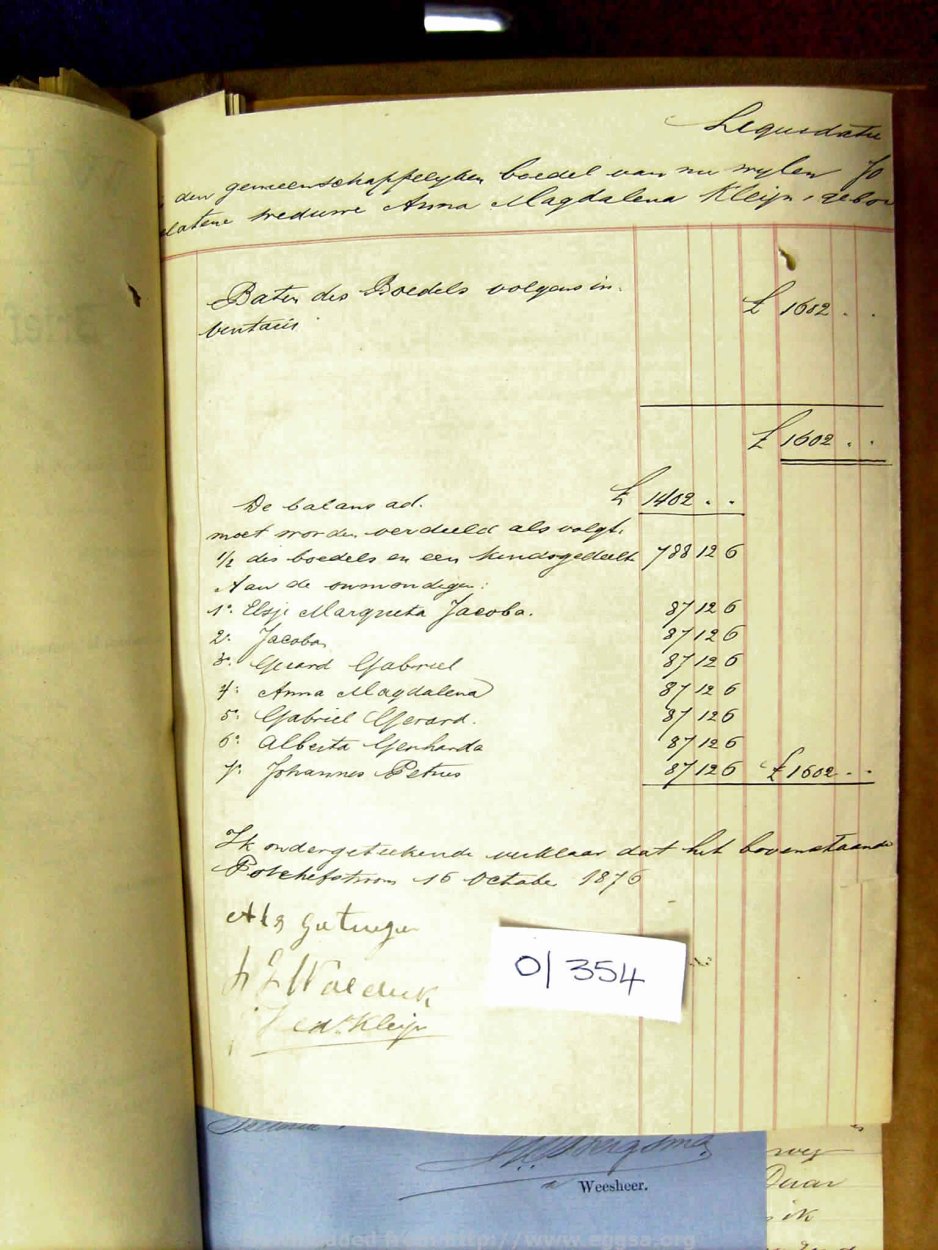 Liquidatie
den gemeenschappelyken boedel van nu wylen Jo
latene weduwe Anna Magdalena Kleijn, gebor
Baten des Boedels volgens in-
ventaris £ 1602 . .
£ 1602 . .
De balans ad. £ 1402 . .
moet worden verdeeld als volgt.
1/2 des boedels en een kindsgedeelte 788 12 6
Aan de onmondigen:
1e. Elsje Margrieta Jacoba. 87 12 6
2e. Jacoba 87 12 6
3e. Gerard Gabriel 87 12 6
4e. Anna Magdalena 87 12 6
5e. Gabriel Gerard. 87 12 6
6e. Alberta Gerharda 87 12 6
7e. Johannes Petrus 87 12 6 £ 1602 . .
Ik ondergeteekende verklaar dat het bovenstaande
Potchefstroom 16 October 1876
Als Getuigen
Kleijn
01/354
Weesheer.
http://www.eggsa.org